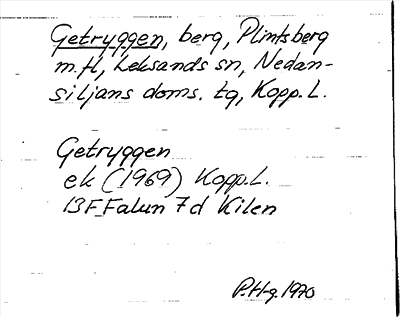 Getryggen, berg, Plintsberg
m.fl, Leksands sn, Nedan-
siljans doms. tg, Kopp. L.
Getryggen
ek (1969) Kopp.L.
13F Falun 7d Kilen
P.H-g. 1970